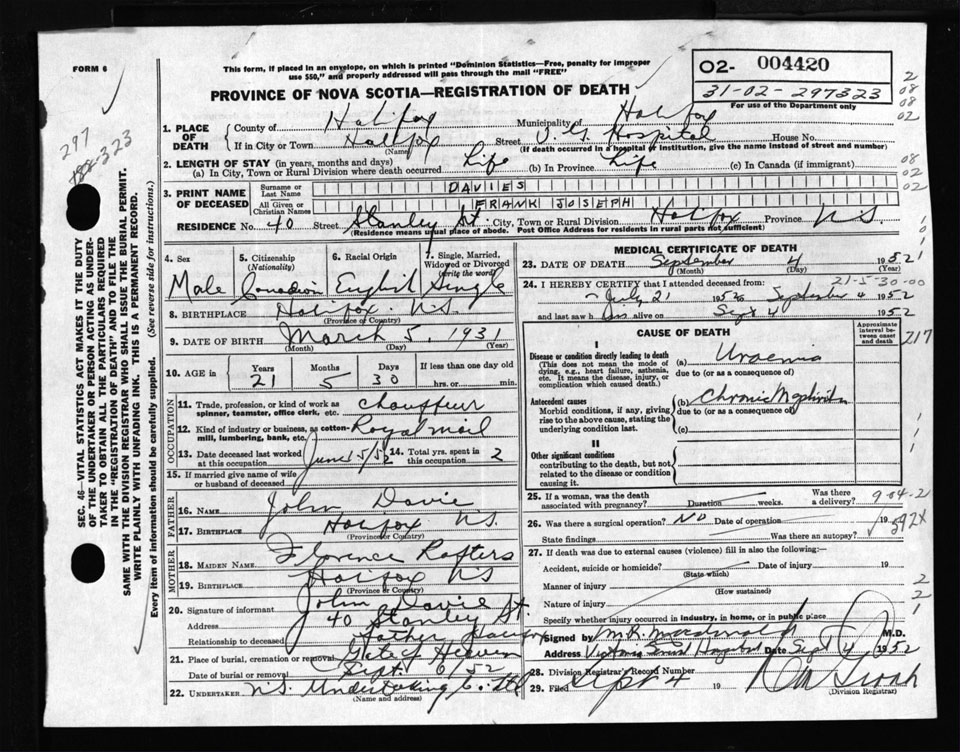 FORM 6
This form, if placed in an envelope, on which is printed "Dominion Statistics—Free, penalty for improper
use $50," and properly addressed will pass through the mail "FREE"
O2- 004420
31-02-297323
For use of the Department only
PROVINCE OF NOVA SCOTIA—REGISTRATION OF DEATH
1. PLACE OF DEATH
County of Halifax Municipality of Halifax
If in City or Town Halifax Street V. G. Hospital House No.
(Name) (If death occurred in a hospital or institution, give the name instead of street and number)
2. LENGTH OF STAY (in years, months and days)
(a) In City, Town or Rural Division where death occurred Life (b) In Province Life (c) In Canada (if immigrant)
3. PRINT NAME OF DECEASED
Surname or Last Name DAVIES
All Given or Christian Names FRANK JOSEPH
RESIDENCE No. 40 Street Stanley St. City, Town or Rural Division Halifax Province N.S.
(Residence means usual place of abode. Post Office Address for residents in rural parts not sufficient)
4. Sex Male
5. Citizenship (Nationality) Canadian
6. Racial Origin English
7. Single, Married, Widowed or Divorced (write the word) Single
8. BIRTHPLACE Halifax N.S.
(Province or Country)
9. DATE OF BIRTH March 5, 1931
(Month) (Day) (Year)
10. AGE in Years 21 Months 5 Days 30 If less than one day old hrs. or min.
OCCUPATION
11. Trade, profession, or kind of work as spinner, teamster, office clerk, etc. chauffeur
12. Kind of industry or business, as cotton-mill, lumbering, bank, etc. Royal mail
13. Date deceased last worked at this occupation June 15/52 14. Total yrs. spent in this occupation 2
15. If married give name of wife or husband of deceased
FATHER
16. NAME John Davie
17. BIRTHPLACE Halifax N.S.
(Province or Country)
MOTHER
18. MAIDEN NAME Florence Rafters
19. BIRTHPLACE Halifax N.S.
(Province or Country)
20. Signature of informant John Davie
Address 40 Stanley St.
Relationship to deceased Father Halifax
21. Place of burial, cremation or removal Gate of Heaven
Date of burial or removal Sept. 6/52
22. UNDERTAKER N.S. Undertaking Co. Ltd
(Name and address)
MEDICAL CERTIFICATE OF DEATH
23. DATE OF DEATH September 4 1952
(Month) (Day) (Year)
24. I HEREBY CERTIFY that I attended deceased from: 21-5-30-00
July 21 1952 to September 4 1952
and last saw him alive on Sept 4 1952
CAUSE OF DEATH
Approximate interval between cause and death
I
Disease or condition directly leading to death (a) Uraemia
(This does not mean the mode of dying, e.g., heart failure, asthenia, etc. It means the disease, injury, or complication which caused death.)
due to (or as a consequence of)
Antecedent causes (b) Chronic Nephritis
Morbid conditions, if any, giving rise to the above cause, stating the underlying condition last.
due to (or as a consequence of)
(c)
II
Other significant conditions
contributing to the death, but not related to the disease or condition causing it.
25. If a woman, was the death associated with pregnancy? Duration weeks. Was there a delivery?
9-04-2
26. Was there a surgical operation? No Date of operation 19
State findings Was there an autopsy?
592X
27. If death was due to external causes (violence) fill in also the following:—
Accident, suicide or homicide? Date of injury 19
(State which)
Manner of injury
(How sustained)
Nature of injury
Specify whether injury occurred in industry, in home, or in public place
Signed by M.D.
Address Victoria General Hospital Date Sept 4 1952
28. Division Registrar's Record Number
29. Filed Sept 4 19
(Division Registrar)
297
323
SEC. 46—VITAL STATISTICS ACT MAKES IT THE DUTY
OF THE UNDERTAKER OR PERSON ACTING AS UNDER-
TAKER TO OBTAIN ALL THE PARTICULARS REQUIRED
IN THE "REGISTRATION OF DEATH" AND TO FILE THE
SAME WITH THE DIVISION REGISTRAR WHO SHALL ISSUE THE BURIAL PERMIT.
WRITE PLAINLY WITH UNFADING INK. THIS IS A PERMANENT RECORD.
Every item of information should be carefully supplied. (See reverse side for instructions.)
2
08
08
02
08
02
02
217
2
2
1